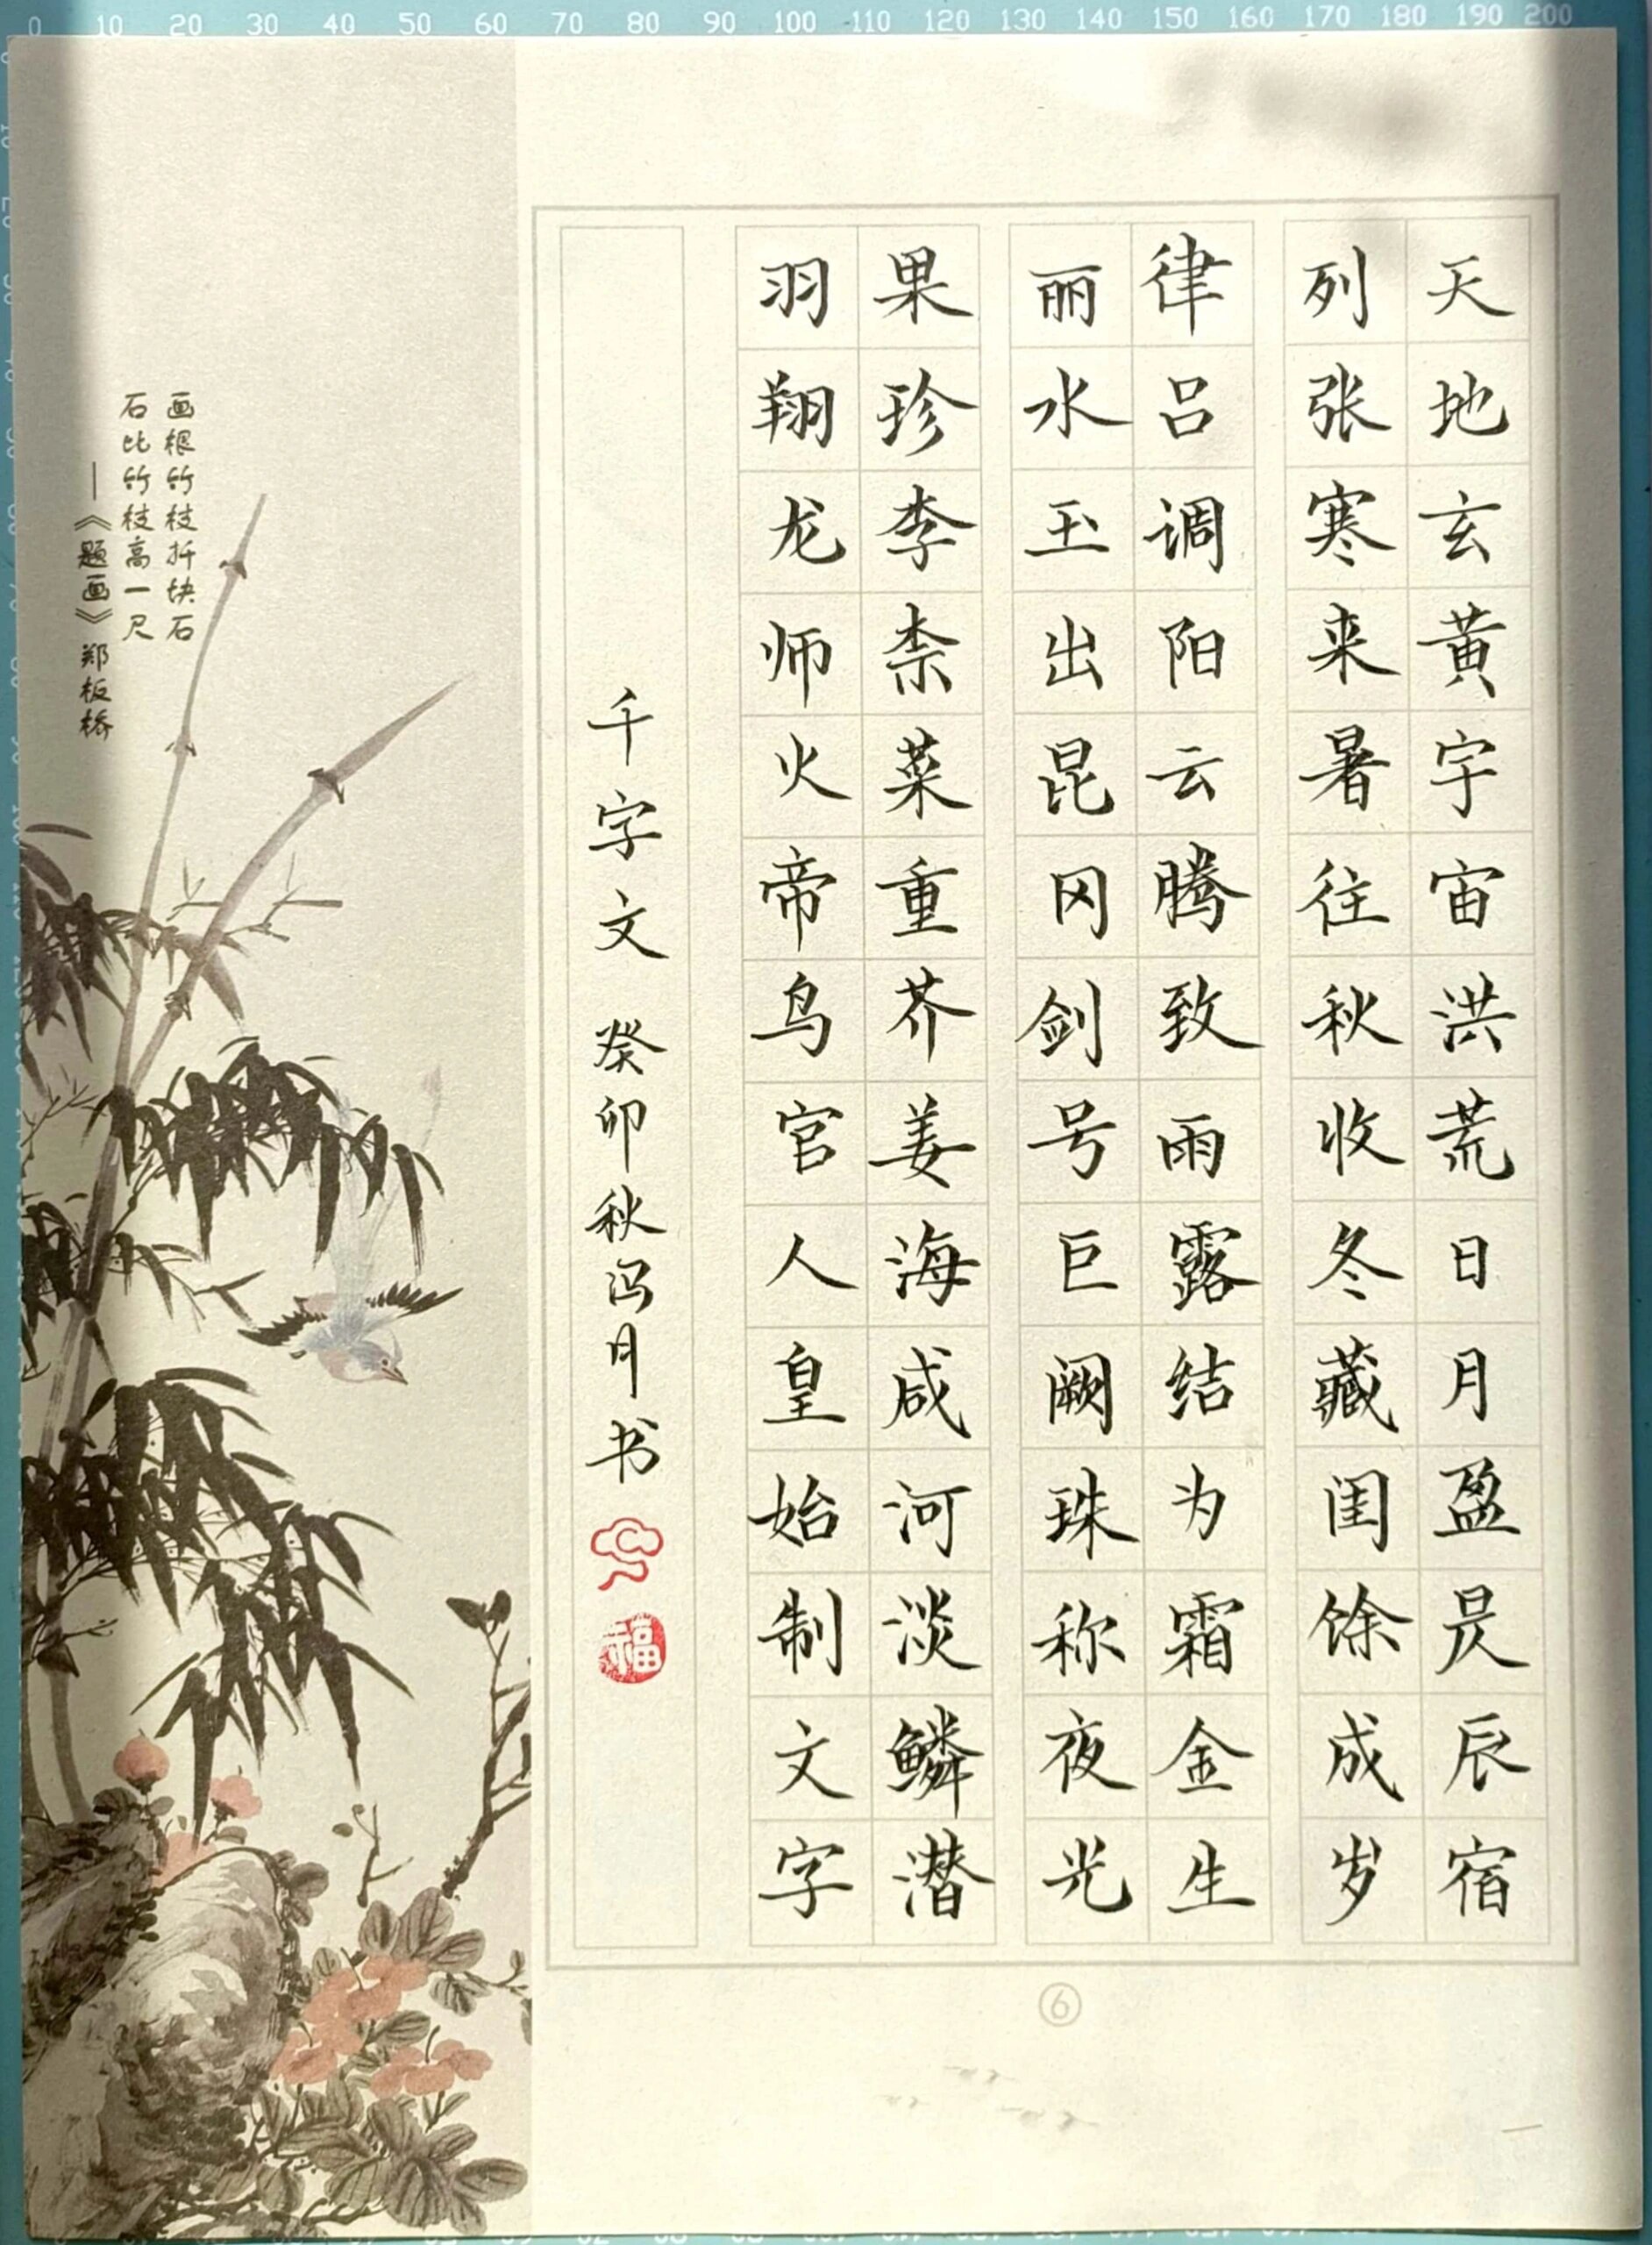 0 10 20 30 40 50 60 70 80 90 100 110 120 130 140 150 160 170 180 190 200
天地玄黄宇宙洪荒日月盈昃辰宿
列张寒来暑往秋收冬藏闺馀成岁
律吕调阳云腾致雨露结为霜金生
丽水玉出昆冈剑号巨阙珠称夜光
果珍李柰菜重芥姜海咸河淡鳞潜
羽翔龙师火帝鸟官人皇始制文字
千字文 癸卯秋冯月书
福
画根竹枝扦块石
石比竹枝高一尺
——《题画》郑板桥
⑥